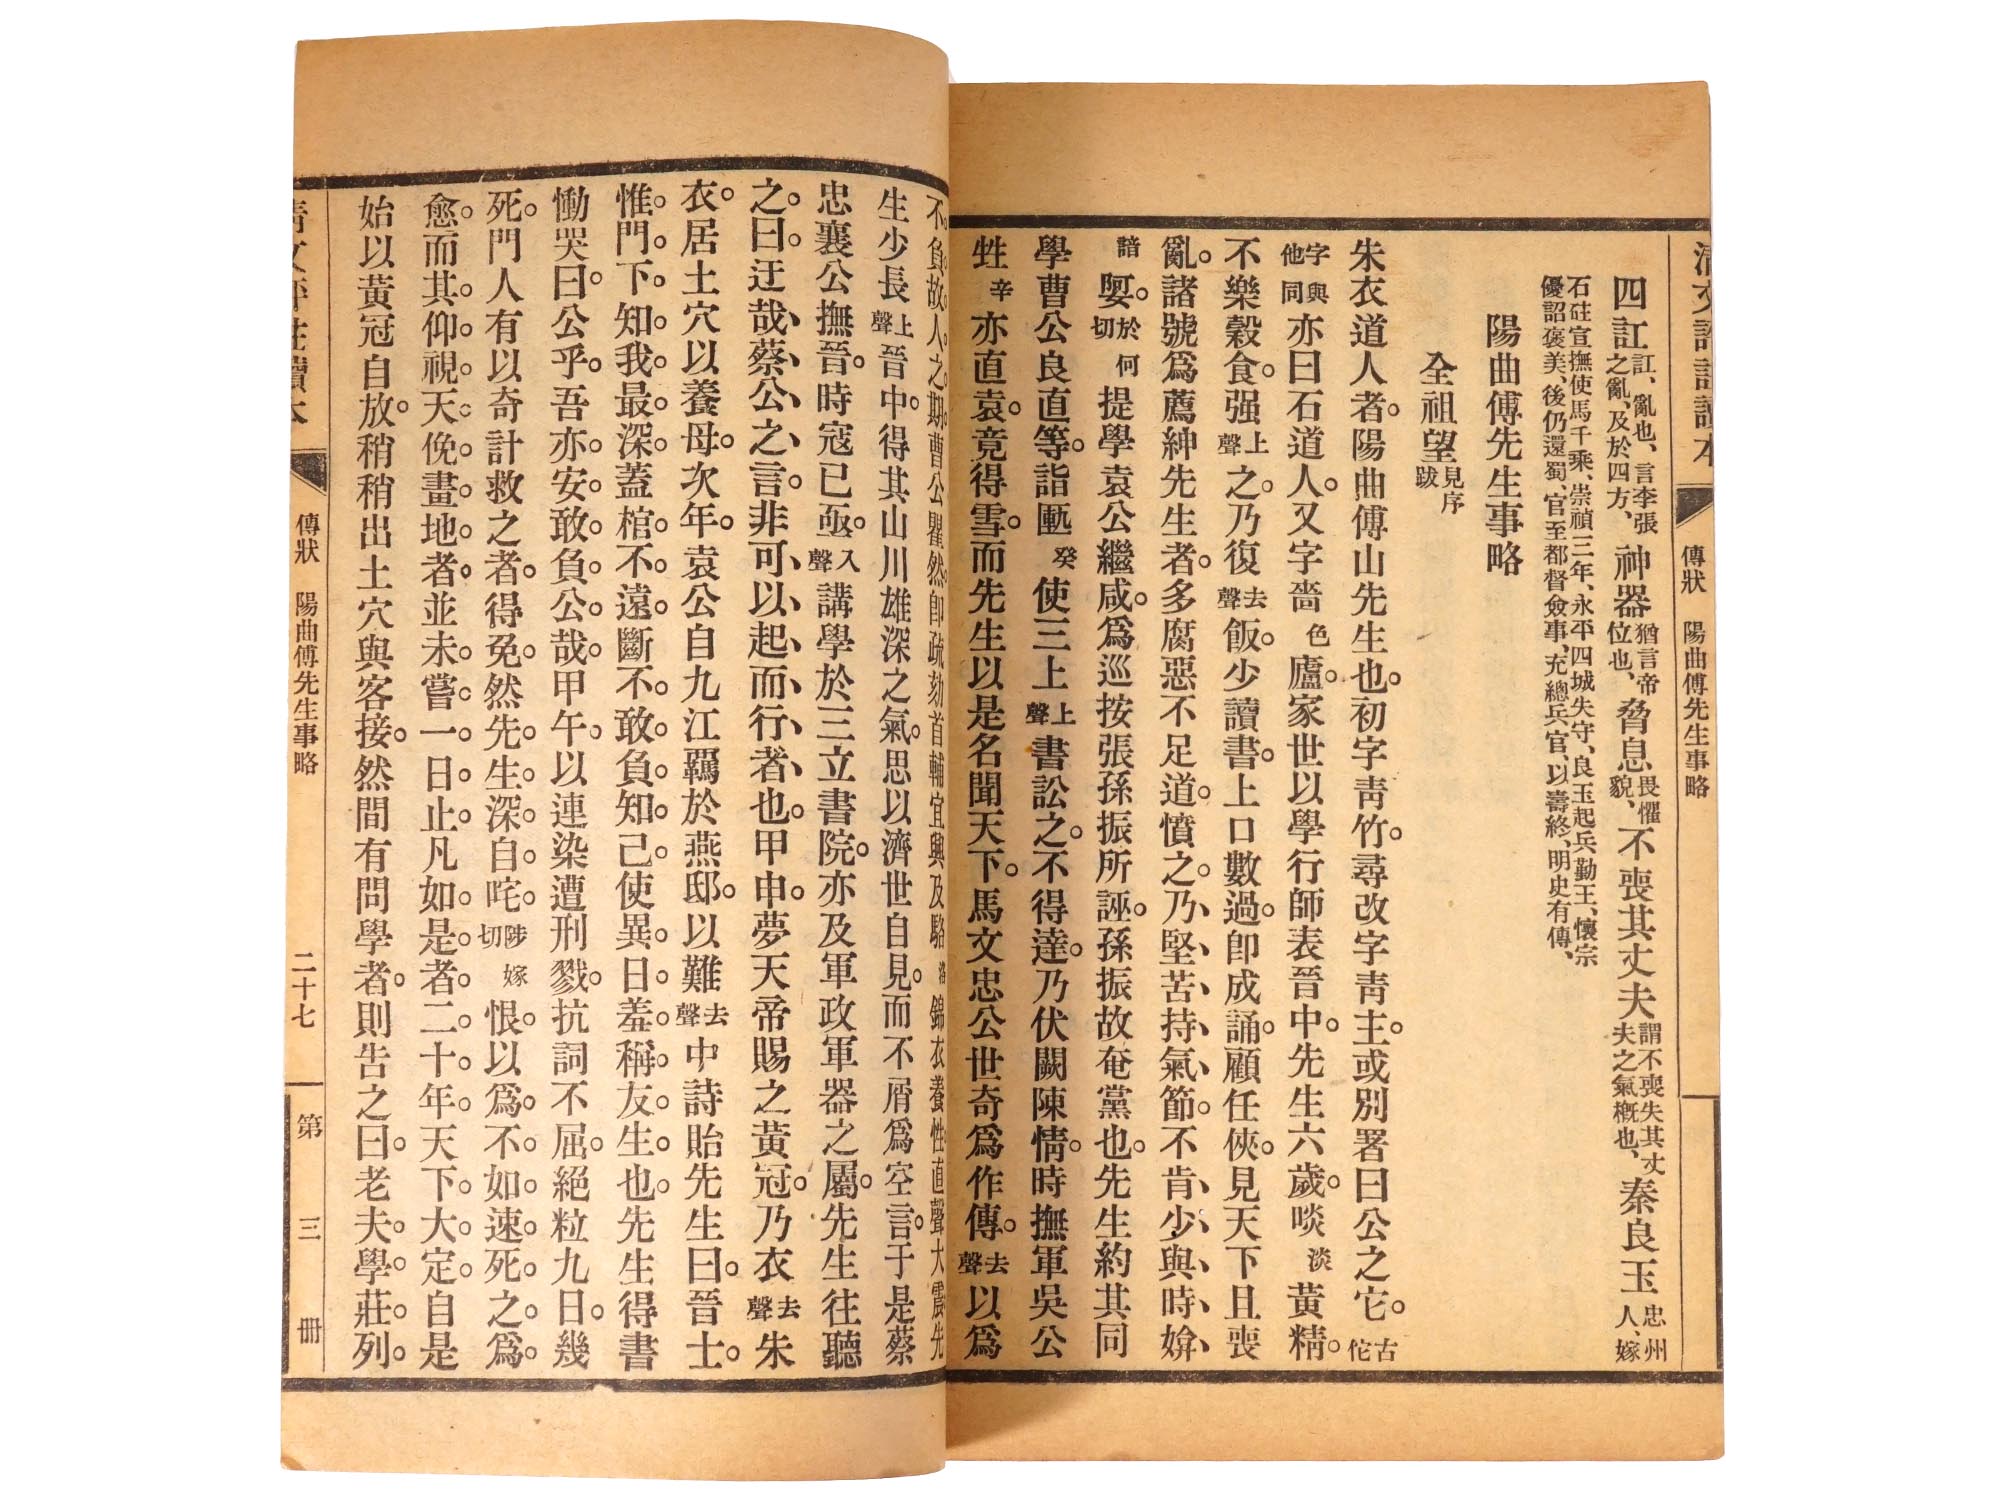 清文評註讀本
傳狀 陽曲傅先生事略
四訌訌、亂也、言李張之亂、及於四方、神器猶言帝位也、脅息畏懼貌、不喪其丈夫謂不喪失其丈夫之氣槪也、秦良玉忠州人、嫁
石砫宣撫使馬千乘、崇禎三年、永平四城失守、良玉起兵勤王、懷宗優詔褒美、後仍還蜀、官至都督僉事、充總兵官、以壽終、明史有傳、
陽曲傅先生事略
全祖望見序跋
朱衣道人者。陽曲傅山先生也。初字靑竹。尋改字靑主。或別署曰公之它。古佗
字與他同亦曰石道人。又字嗇色廬。家世以學行師表晉中。先生六歲。啖淡黃精。
不樂穀食。强上聲之。乃復去聲飯。少讀書。上口數過。卽成誦。顧任俠。見天下且喪
亂。諸號爲薦紳先生者。多腐惡不足道。憤之、乃堅苦持氣節、不肯少與時媕
諳婴。於何切提學袁公繼咸。爲巡按張孫振所誣。孫振故奄黨也。先生約其同
學曹公良直等。詣匭癸使三上上聲書訟之。不得達。乃伏闕陳情。時撫軍吳公
甡辛亦直袁。竟得雪。而先生以是名聞天下。馬文忠公世奇爲作傳。去聲以爲
不負故人之期曹公瞿然卽疏劾首輔宜興及駱洛錦衣養性直聲大震先
生少長上聲晉中。得其山川雄深之氣。思以濟世自見。而不屑爲空言。于是蔡
忠襄公撫晉。時寇已亟。入聲講學於三立書院。亦及軍政軍器之屬。先生往聽
之。曰。迂哉、蔡公之言。非可以起而行者也。甲申。夢天帝賜之黃冠。乃衣去聲朱
衣。居土穴以養母。次年。袁公自九江羈於燕邸。以難去聲中詩貽先生曰。晉士。
惟門下。知我最深。蓋棺不遠。斷不敢負知己。使異日羞稱友生也。先生得書
慟哭曰。公乎。吾亦安敢負公哉。甲午。以連染遭刑戮。抗詞不屈。絕粒九日。幾
死。門人有以奇計救之者。得免。然先生深自咤。陟嫁切恨以爲不如速死之爲
愈。而其仰視天俛畫地者。並未嘗一日止。凡如是者。二十年。天下大定。自是
始以黃冠自放。稍稍出土穴與客接。然間有問學者。則告之曰。老夫學莊列。
清文評註讀本
傳狀 陽曲傅先生事略
二十七
第三册